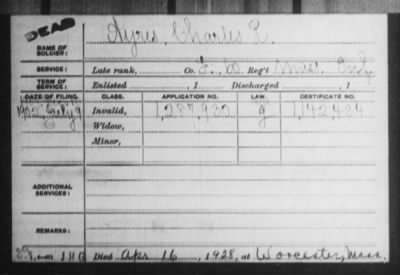 DEAD
NAME OF SOLDIER: Ayris, Charles R.
SERVICE: Late rank, Co. Reg't Inf.
TERM OF SERVICE: Enlisted , 1 Discharged , 1
DATE OF FILING. CLASS. APPLICATION NO. LAW. CERTIFICATE NO.
1902 July 9 Invalid, 1,287,933 g 1,142,434
Widow,
Minor,
ADDITIONAL SERVICES:
REMARKS:
Died Apr 16 , 1928, at Worcester, Mass.